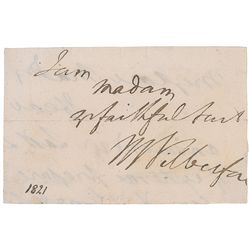 I am
madam
yr faithful Sert
W Wilberfor
1821